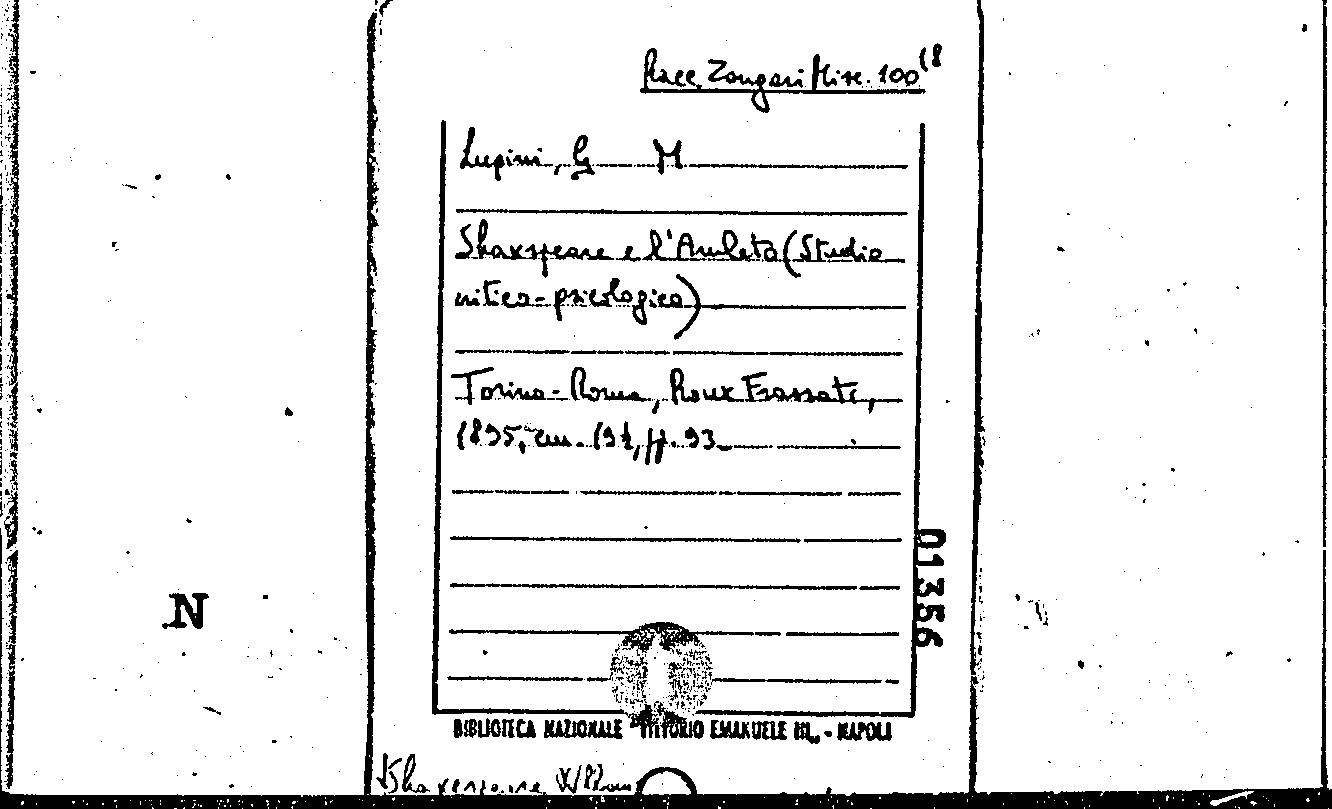 Racc. Zangari Misc. 100 18
Lupini, G M
Shakspeare e l'Amleto (Studio
critico-psicologico)
Torino-Roma, Roux Frassati,
1895, cm. 19½, pp. 93
01356
N
BIBLIOTECA NAZIONALE "VITTORIO EMANUELE III„ - NAPOLI
Shakespeare